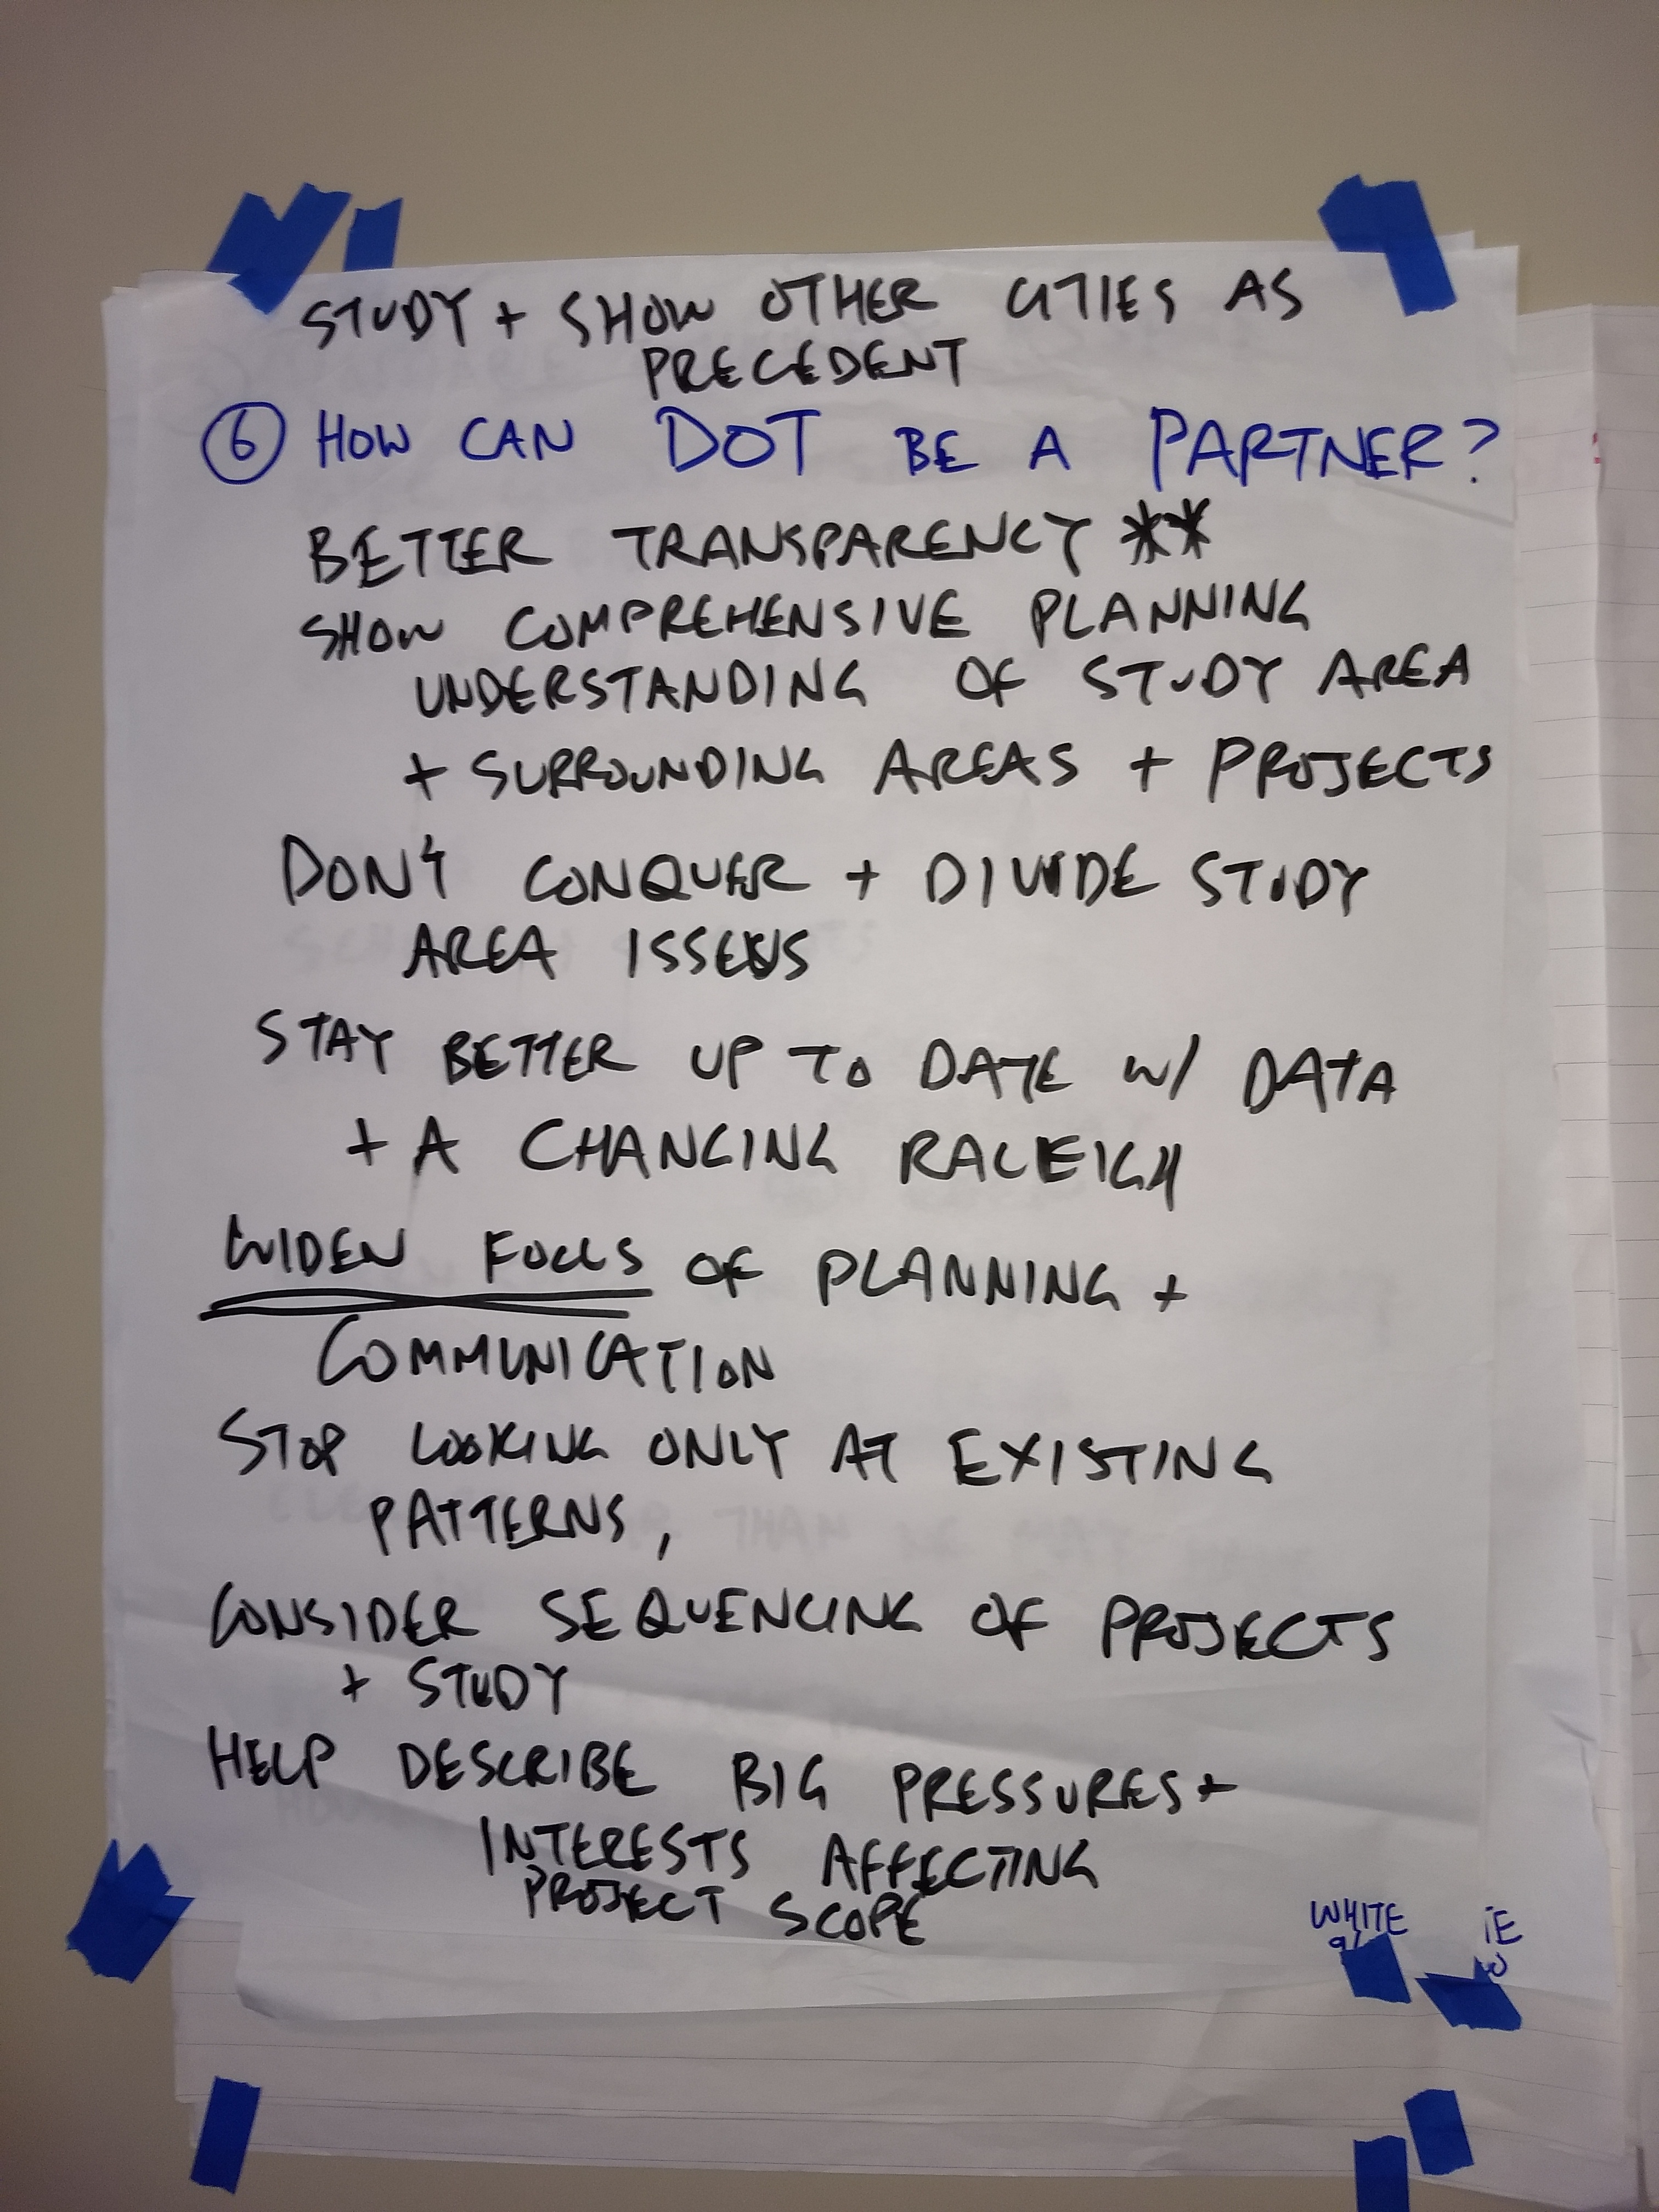 STUDY + SHOW OTHER CITIES AS
PRECEDENT
6 HOW CAN DOT BE A PARTNER?
BETTER TRANSPARENCY **
SHOW COMPREHENSIVE PLANNING
UNDERSTANDING OF STUDY AREA
+ SURROUNDING AREAS + PROJECTS
DON'T CONQUER + DIVIDE STUDY
AREA ISSEUS
STAY BETTER UP TO DATE W/ DATA
+ A CHANGING RALEIGH
WIDEN FOCUS OF PLANNING +
COMMUNICATION
STOP LOOKING ONLY AT EXISTING
PATTERNS,
CONSIDER SEQUENCING OF PROJECTS
+ STUDY
HELP DESCRIBE BIG PRESSURES +
INTERESTS AFFECTING
PROJECT SCOPE
WHITE